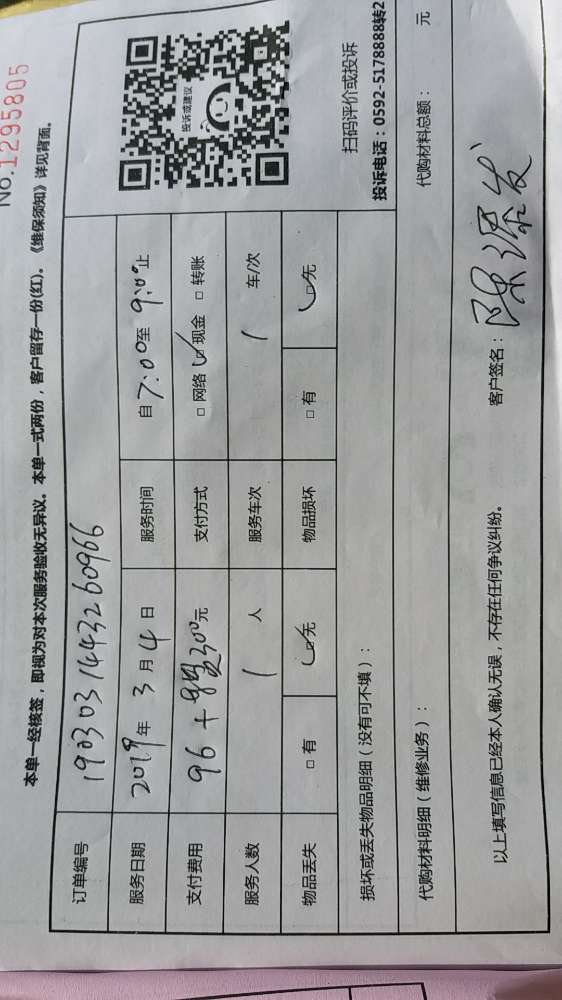 No.1295805
本单一经核签，即视为对本次服务验收无异议。本单一式两份，客户留存一份(红)。《维保须知》详见背面。
订单编号 1903031443260966
服务日期 2019年 3 月 4 日 服务时间 自7:00至 9:00止
支付费用 96 + 300元 支付方式 □ 网络 ✓ 现金 □ 转账
服务人数 1 人 服务车次 1 车/次
物品丢失 □ 有 ✓ 无 物品损坏 □ 有 ✓ 无
投诉或建议
扫码评价或投诉
投诉电话：0592-5178888转2
损坏或丢失物品明细（没有可不填）：
代购材料明细（维修业务）： 代购材料总额： 元
以上填写信息已经本人确认无误，不存在任何争议纠纷。 客户签名：